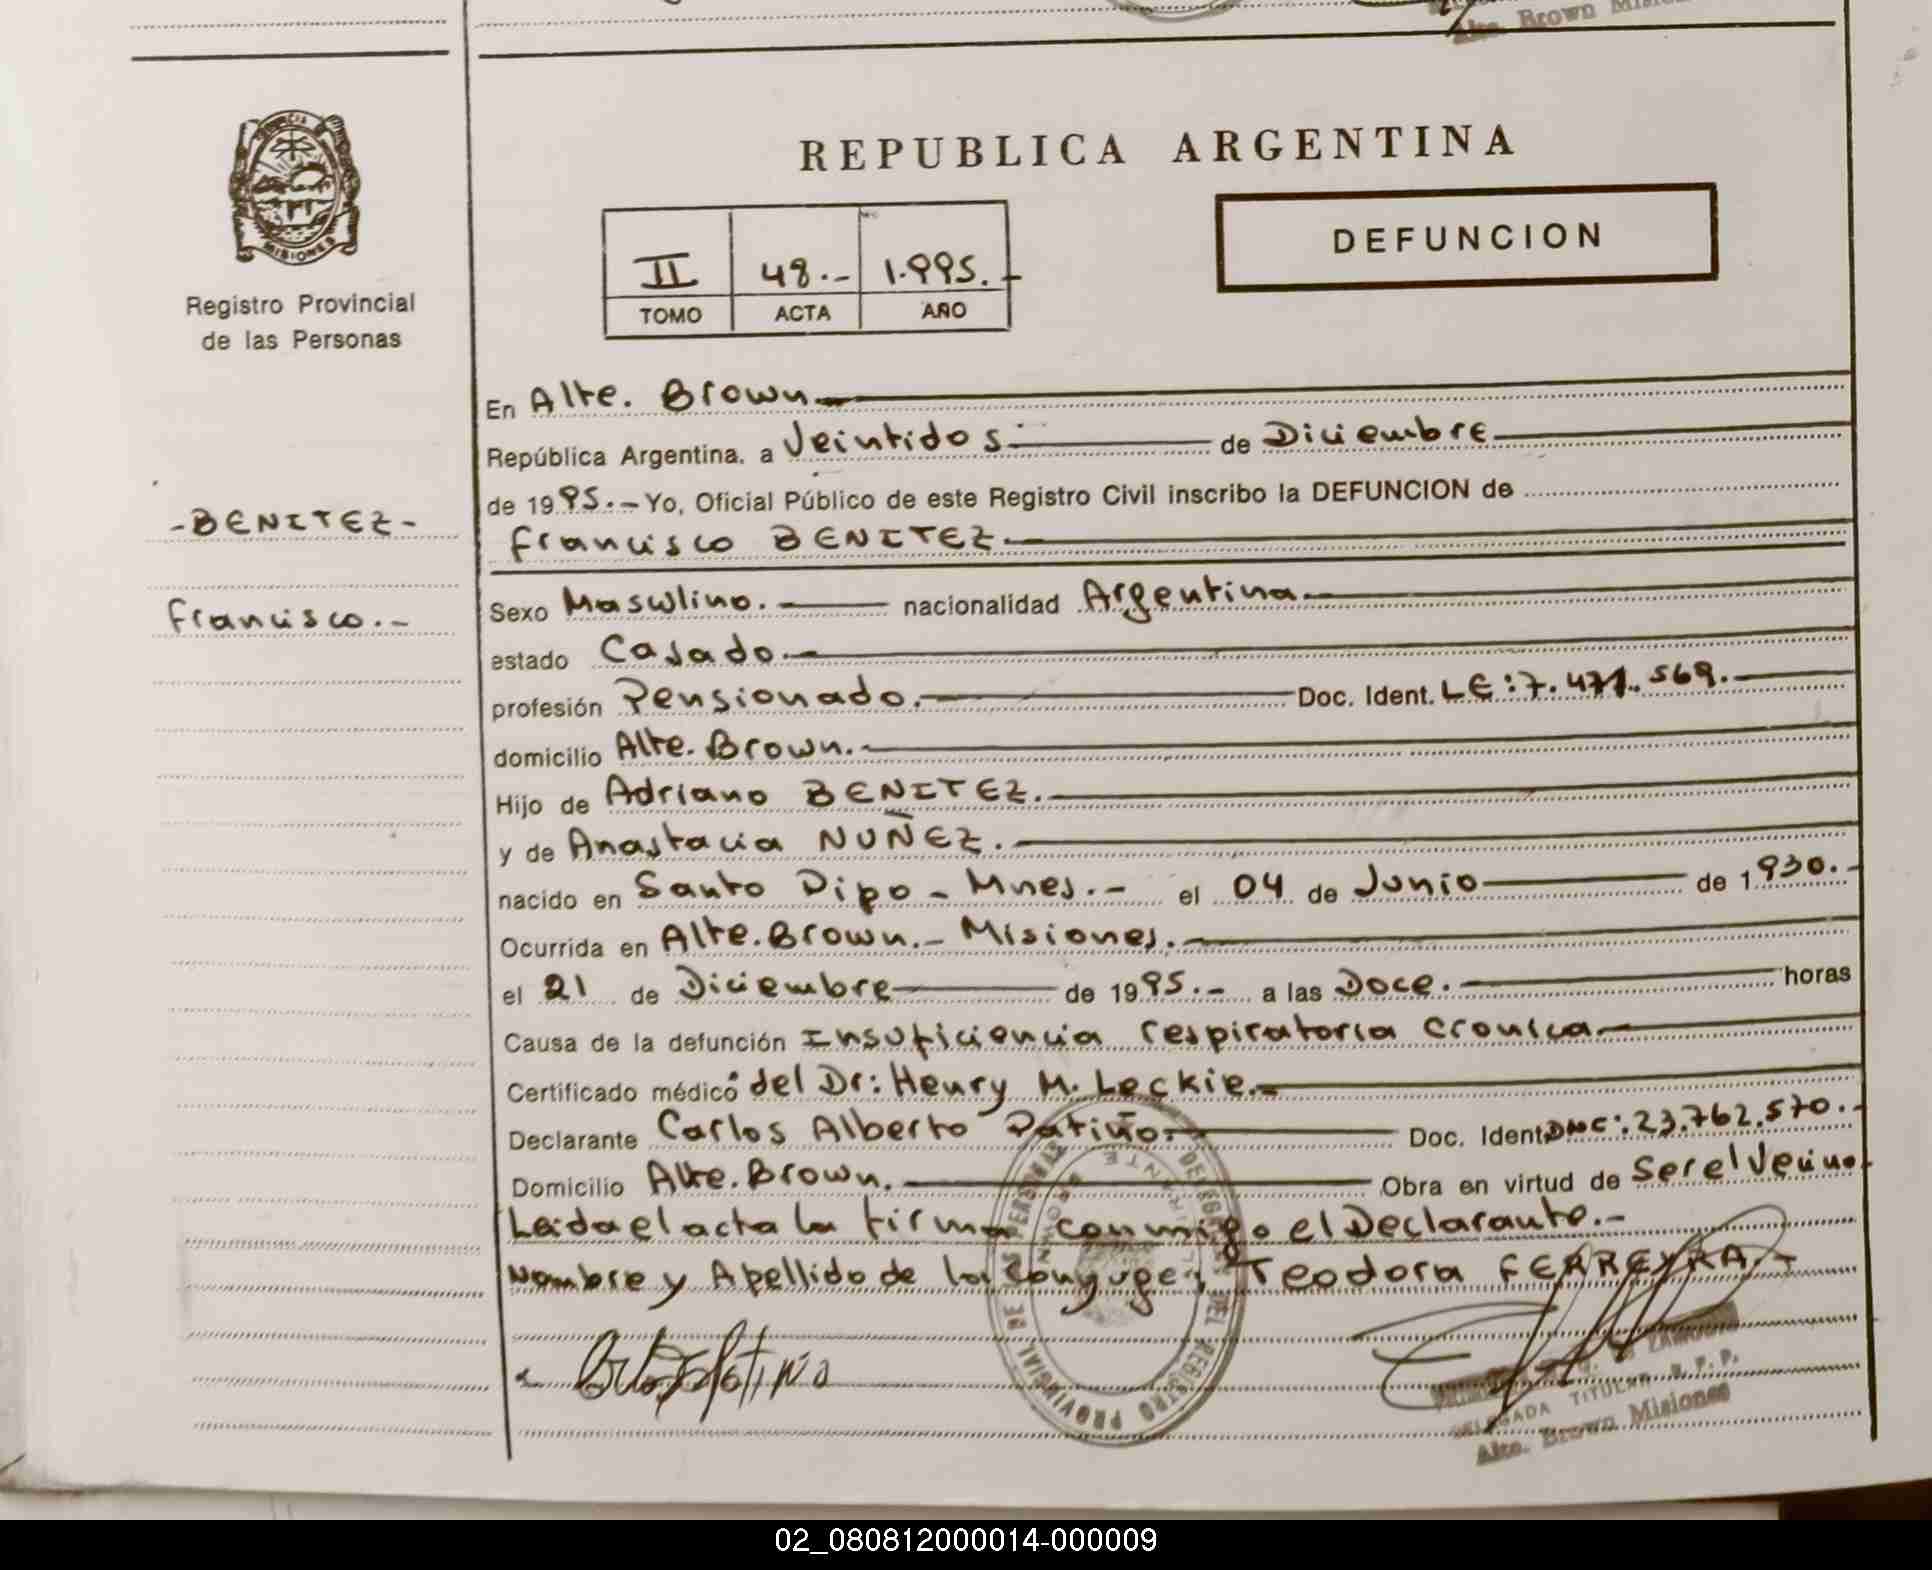 Alte. Brown
MISIONES
REPUBLICA ARGENTINA
DEFUNCION
II 48.- 1.995.-
TOMO ACTA AÑO
Registro Provincial
de las Personas
-BENITEZ-
Francisco.-
En Alte. Brown
República Argentina, a Veintidos de Diciembre
de 1995.- Yo, Oficial Público de este Registro Civil inscribo la DEFUNCION de
Francisco BENITEZ.
Sexo Masculino. nacionalidad Argentina
estado Casado.-
profesión Pensionado. Doc. Ident. LE:7.471.569.
domicilio Alte. Brown.
Hijo de Adriano BENITEZ.
y de Anastacia NUÑEZ.
nacido en Santo Dipo - Mnes.- el 04 de Junio de 1930.-
Ocurrida en Alte. Brown.- Misiones.
el 21 de Diciembre de 1995.- a las Doce. horas
Causa de la defunción Insuficiencia respiratoria cronica.
Certificado médico del Dr: Henry M. Leckie.-
Declarante Carlos Alberto Patiño. Doc. Ident DNC:23.762.570.-
Domicilio Alte. Brown. Obra en virtud de Ser el Vecino
Leida el acta la firma conmigo el Declarante.-
Nombre y Apellido de la Conyuge: Teodora FERREYRA.-
DELEGADA TITULAR R.P.P.
Alte. Brown Misiones
02_080812000014-000009